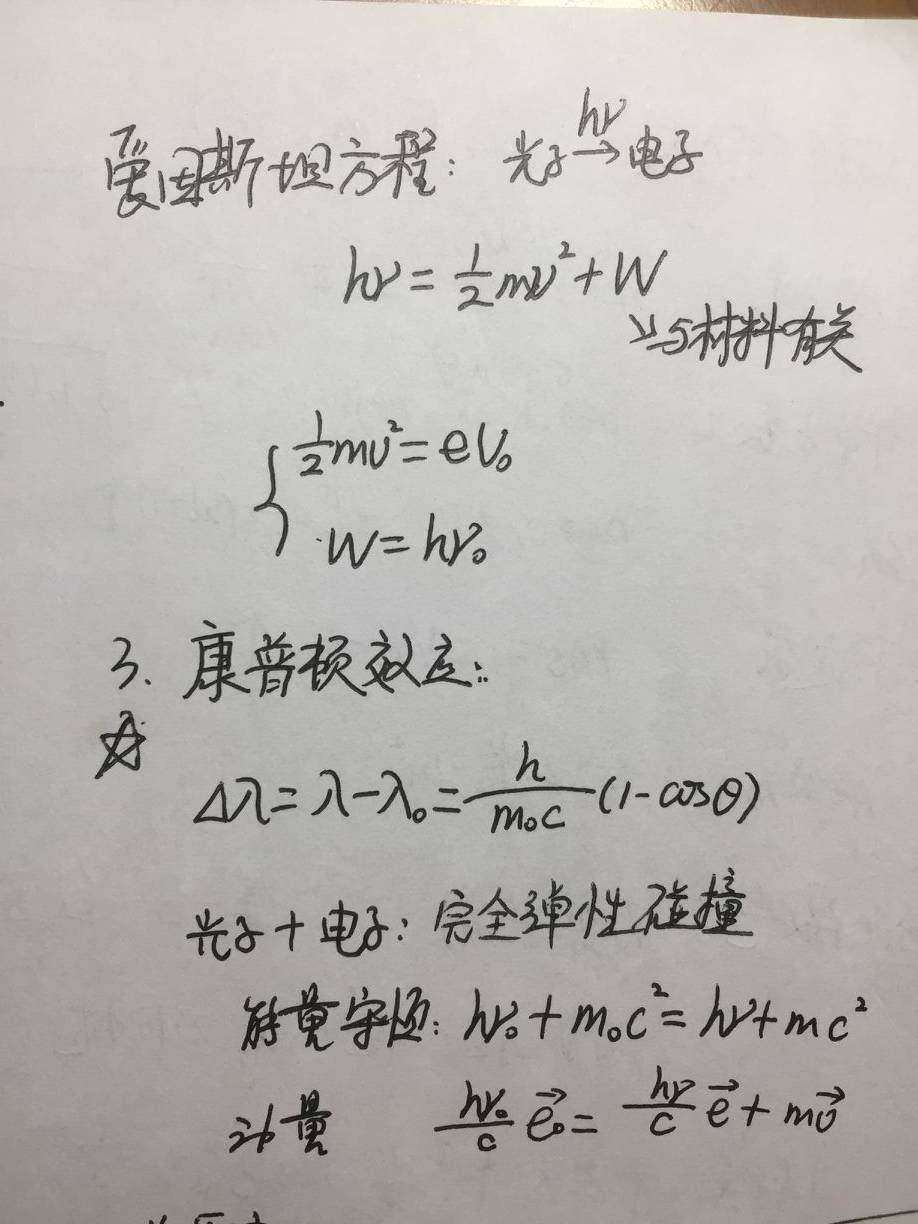 爱因斯坦方程: 光子 \xrightarrow{hν} 电子
hν = \frac{1}{2}mv² + W
↘与材料有关
{ \frac{1}{2}mv² = eU₀
W = hν₀
3. 康普顿效应:
☆
Δλ = λ - λ₀ = \frac{h}{m₀c}(1 - cosθ)
光子 + 电子: 完全弹性碰撞
能量守恒: hν₀ + m₀c² = hν + mc²
动量 \frac{hν₀}{c} \vec{e₀} = \frac{hν}{c} \vec{e} + m\vec{v}